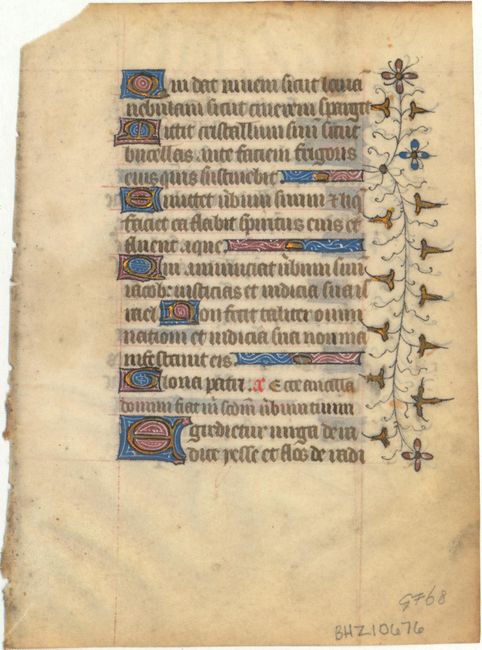 Qui dat nivem sicut lana
nebulam sicut cinerem spargit
Mittit cristallum suu sicut
buccellas ante faciem frigoris
eius quis sustinebit
Emittet verbum suum et liq
faciet ea flabit spiritus eius et
fluent aque
Qui annunciat verbum suu
iacob iusticias et iudicia sua is
rael Non fecit taliter omni
nationi et iudicia sua non ma
nifestavit eis
Gloria patri . a Ecce ancilla
domini fiat m scdm verbum tuum
Egredietur virga de ra
dice yesse et flos de radi
GF68
BHZ10676